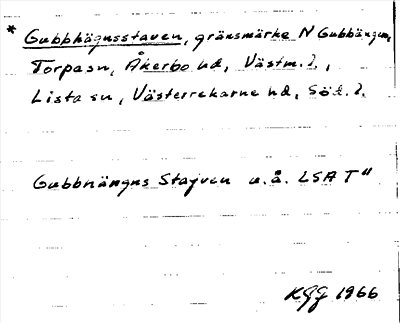 * Gubbhägnsstaven, gränsmärke N Gubbängen,
Torpa sn, Åkerbo hd, Västm. l.,
Lista sn, Västerrekarne hd, Söd. l.
Gubbnängns Stajven u.å. LSA T"
KGJ 1966